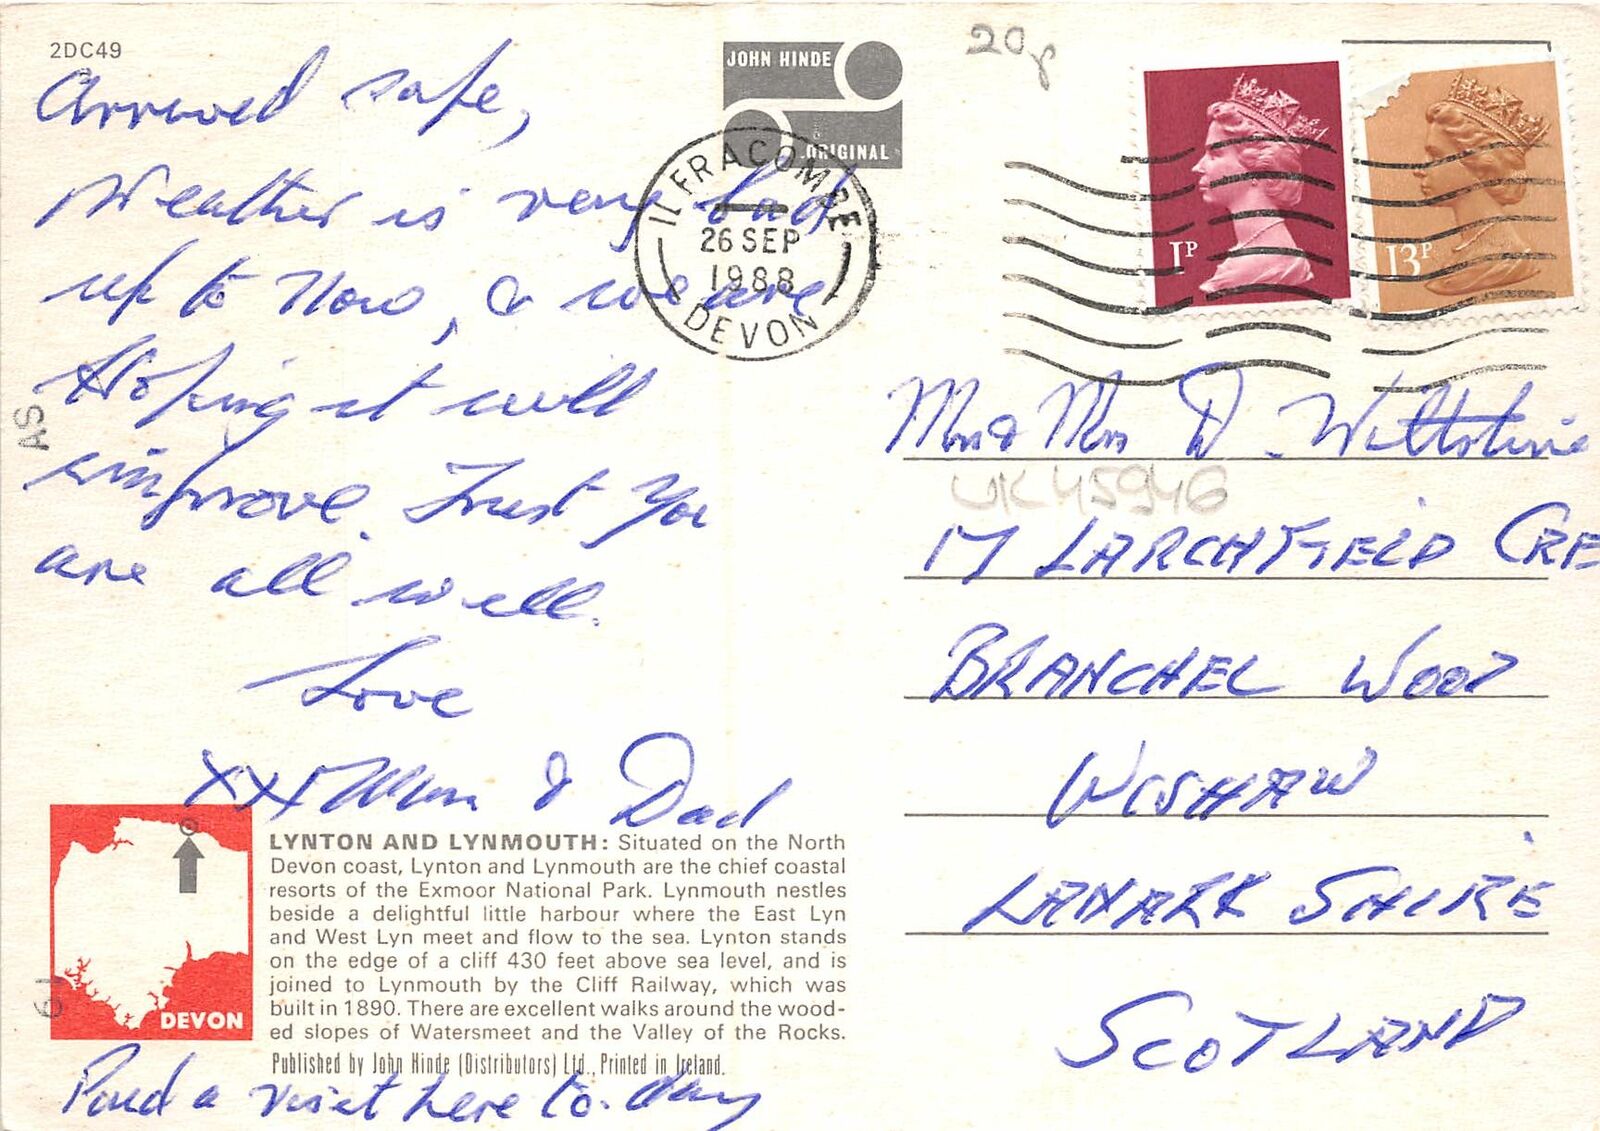 2DC49
Arrived safe,
Weather is very bad
up to Now, & we are
Hoping it will
improve. Trust You
are all well.
Love
XXX Mum & Dad
JOHN HINDE
ORIGINAL
20p
ILFRACOMBE
26 SEP
1988
DEVON
1P
13P
Mr & Mrs D Wiltshire
UK45946
17 LARCHFIELD CRE
BRANCHEL WOOD
WISHAW
LANARK SHIRE
SCOTLAND
AS
61
DEVON
LYNTON AND LYNMOUTH: Situated on the North
Devon coast, Lynton and Lynmouth are the chief coastal
resorts of the Exmoor National Park. Lynmouth nestles
beside a delightful little harbour where the East Lyn
and West Lyn meet and flow to the sea. Lynton stands
on the edge of a cliff 430 feet above sea level, and is
joined to Lynmouth by the Cliff Railway, which was
built in 1890. There are excellent walks around the wood-
ed slopes of Watersmeet and the Valley of the Rocks.
Published by John Hinde (Distributors) Ltd., Printed in Ireland.
Paid a visit here to-day